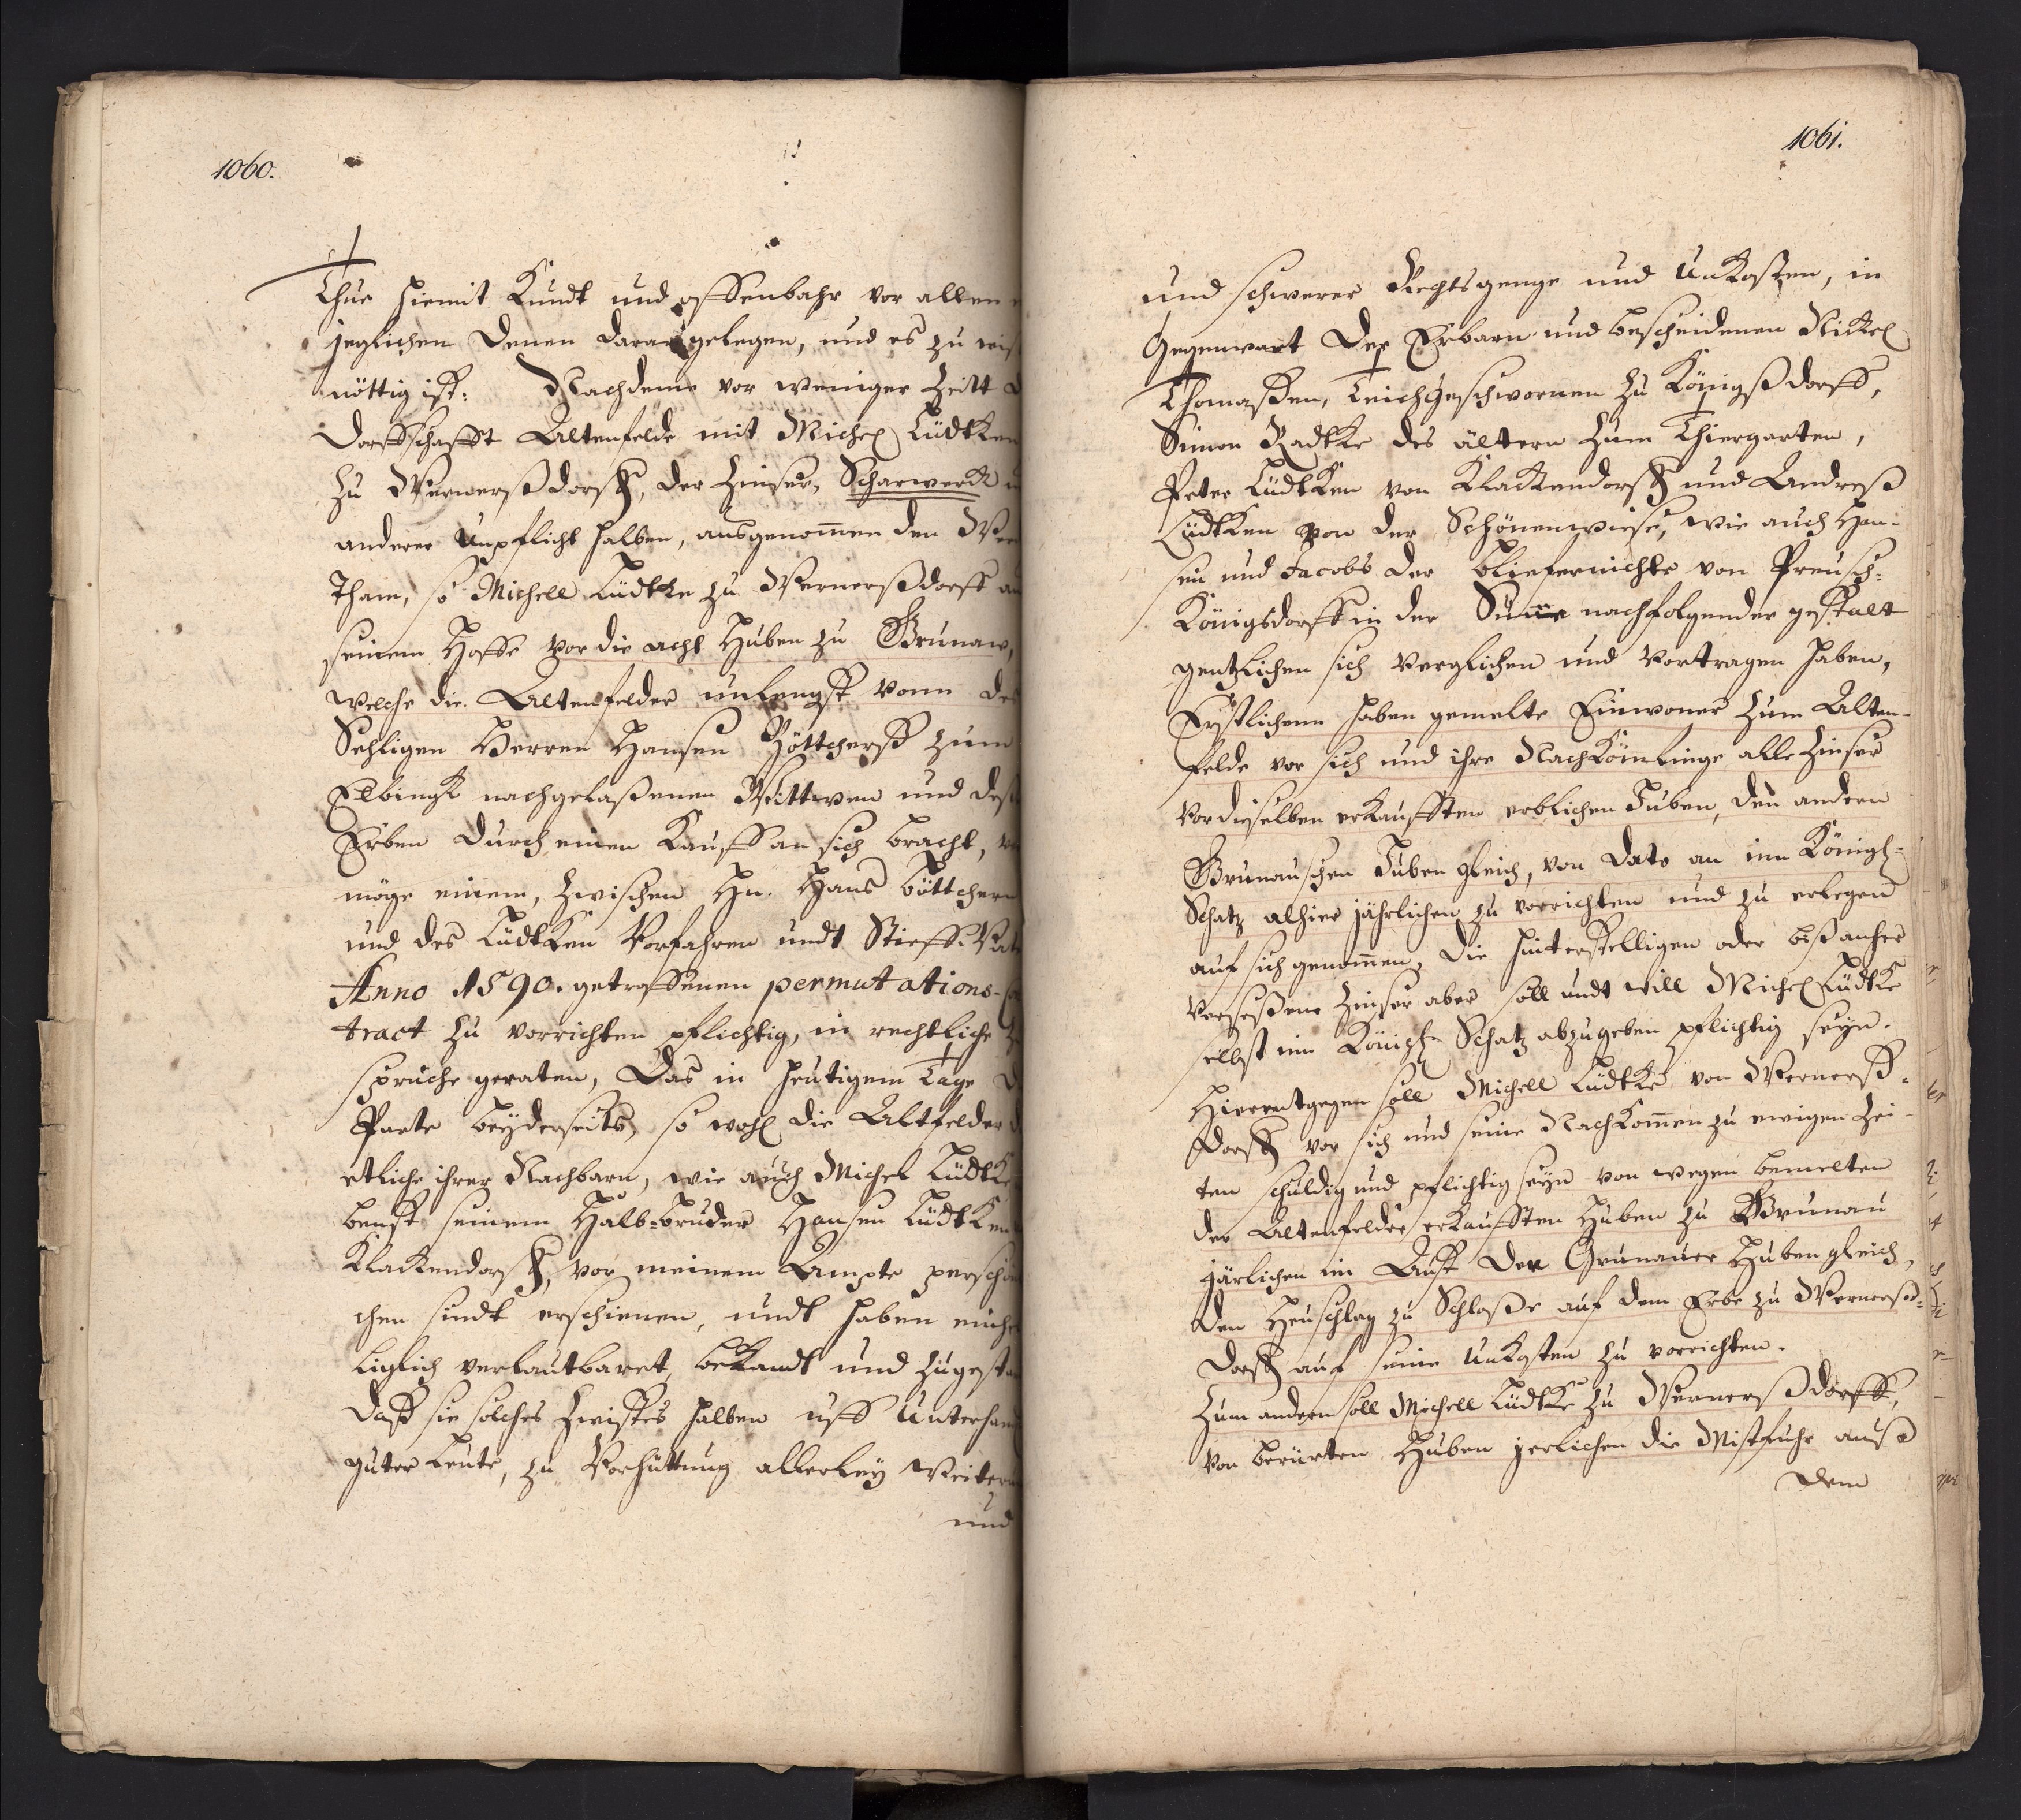 1060.
Thue hiemit Kundt und offenbahr vor allen
jeglichen denen daran gelegen, und es zu wis
nöttig ist: Nachdeme vor weniger Zeitt
Dorffschafft Altenfelde mit Michel Lüdtken
zu Wernerßdorff, der Zinser, Scharwerck
anderer Unpflicht halben, ausgenom̄en den
Tham, so Michell Lüdtke zu Wernerßdorff
seinem Hoffe vor die acht Huben zu Grunaw,
welche die Altenfelder unlengst vonn
Sehligen Herren Hansen Böttcherß zum
Elbingk nachgelaßenen Wittwen und deß
Erben durch einen Kauff an sich bracht,
möge einem, zwischen Hn. Hans böttchern
und des Lüdtken Vorfahren undt Stieff-
Anno 1590. getroffenen permutations-
tract zu vorrichten pflichtig, in rechtliche
spruche geraten, Das in heutigem Tage
Parte beyderseits, so wohl die Altfelder
etliche ihrer Nachbarn, wie auch Michel Lüdtke
benst seinem Halb-bruder Hansen Lüdtken
Klackendorff, vor meinem Ampte
chen sindt erschienen, undt haben
liglich verlautbaret, bekandt und zugesta
Daß sie solches Zwistes halben uff Unterhan
guter Leute, zu Vorhüttung allerley Weiter
und
1061.
und schwerer Rechtsgenge und Unkosten, in
Gegenwart Der Erbarn und bescheidenen Nickel
Thomaßen, Teichgeschwornen zu Königßdorff,
Simon Radtke des ältern zum Thiergarten,
Peter Lüdtken von Klackendorff und Andreß
Lüdtken von der Schönenwiese, wie auch Han-
sen und Jacobs der von Preusch-
Königsdorff in der nachfolgender gestalt
gentzlichen sich verglichen und vortragen haben,
Erstlichenn haben gemelte Einwoner zum Alten-
felde vor sich und ihre Nachköm̄linge alle Zinser
vor dieselben erkaufften erblichen Huben, den andern
Grunauschen Huben gleich, von dato an inn Königl-
Schatz alhier jährlichen zu vorrichten und zu erlegen
auf sich genom̄en, Die hinterstelligen oder bißanher
verseßene Zinser aber soll undt will Michel Lüdtke
selbst im Königl- Schatz abzugeben pflichtig seyn.
Hierentgegen soll Michell Lüdtke von Wernerß-
dorff vor sich und seine Nachkom̄en zu ewigen Zei-
ten schuldig und pflichtig seyn von wegen bemelten
der Altenfelder erkaufften Huben zu Grunau
järlichen im Aust Der Grunauer Huben gleich,
Den Heuschlag zu Schloße auf dem Erbe zu Wernerß-
dorff auf seine Unkosten zu vorrichten.
Zum andern soll Michell Lüdtke zu Wernerßdorff,
von berürten Huben jerlichen die Mistfuhr auß
dem